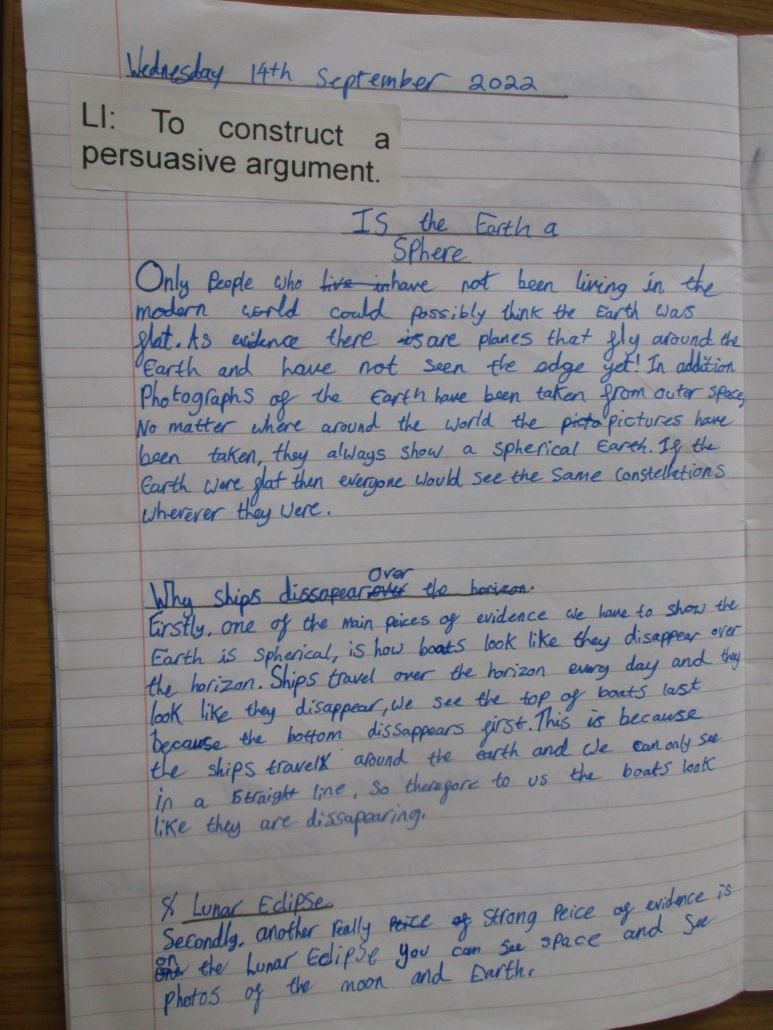 Wednesday 14th September 2022
LI: To construct a
persuasive argument.
IS the Earth a
Sphere
Only People who live in have not been living in the
modern world could possibly think the Earth was
flat. As evidence there is are planes that fly around the
Earth and have not seen the edge yet! In addition
Photographs of the Earth have been taken from outer space,
No matter where around the world the picto pictures have
been taken, they always show a spherical Earth. If the
Earth were flat then everyone would see the same constellations
wherever they were.
Over
Why ships dissapear over the horizon.
Firstly, one of the main peices of evidence we have to show the
Earth is spherical, is how boats look like they disappear over
the horizon. Ships travel over the horizon every day and they
look like they disappear, we see the top of boats last
because the bottom dissappears first. This is because
the ships travels around the earth and we can only see
in a straight line, so therefore to us the boats look
like they are dissapearing.
Lunar Eclipse
Secondly, another really Peice of strong Peice of evidence is
on
the Lunar Eclipse you can see space and see
photos of the moon and Earth.